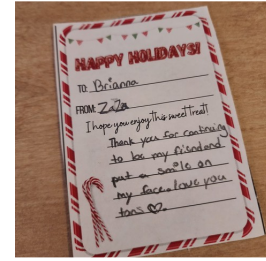 HAPPY HOLIDAYS!
TO: Brianna
FROM: ZaZa
I hope you enjoy this sweet treat!
Thank you for continuing
to be my friend and
put a smile on
my face. love you
tons